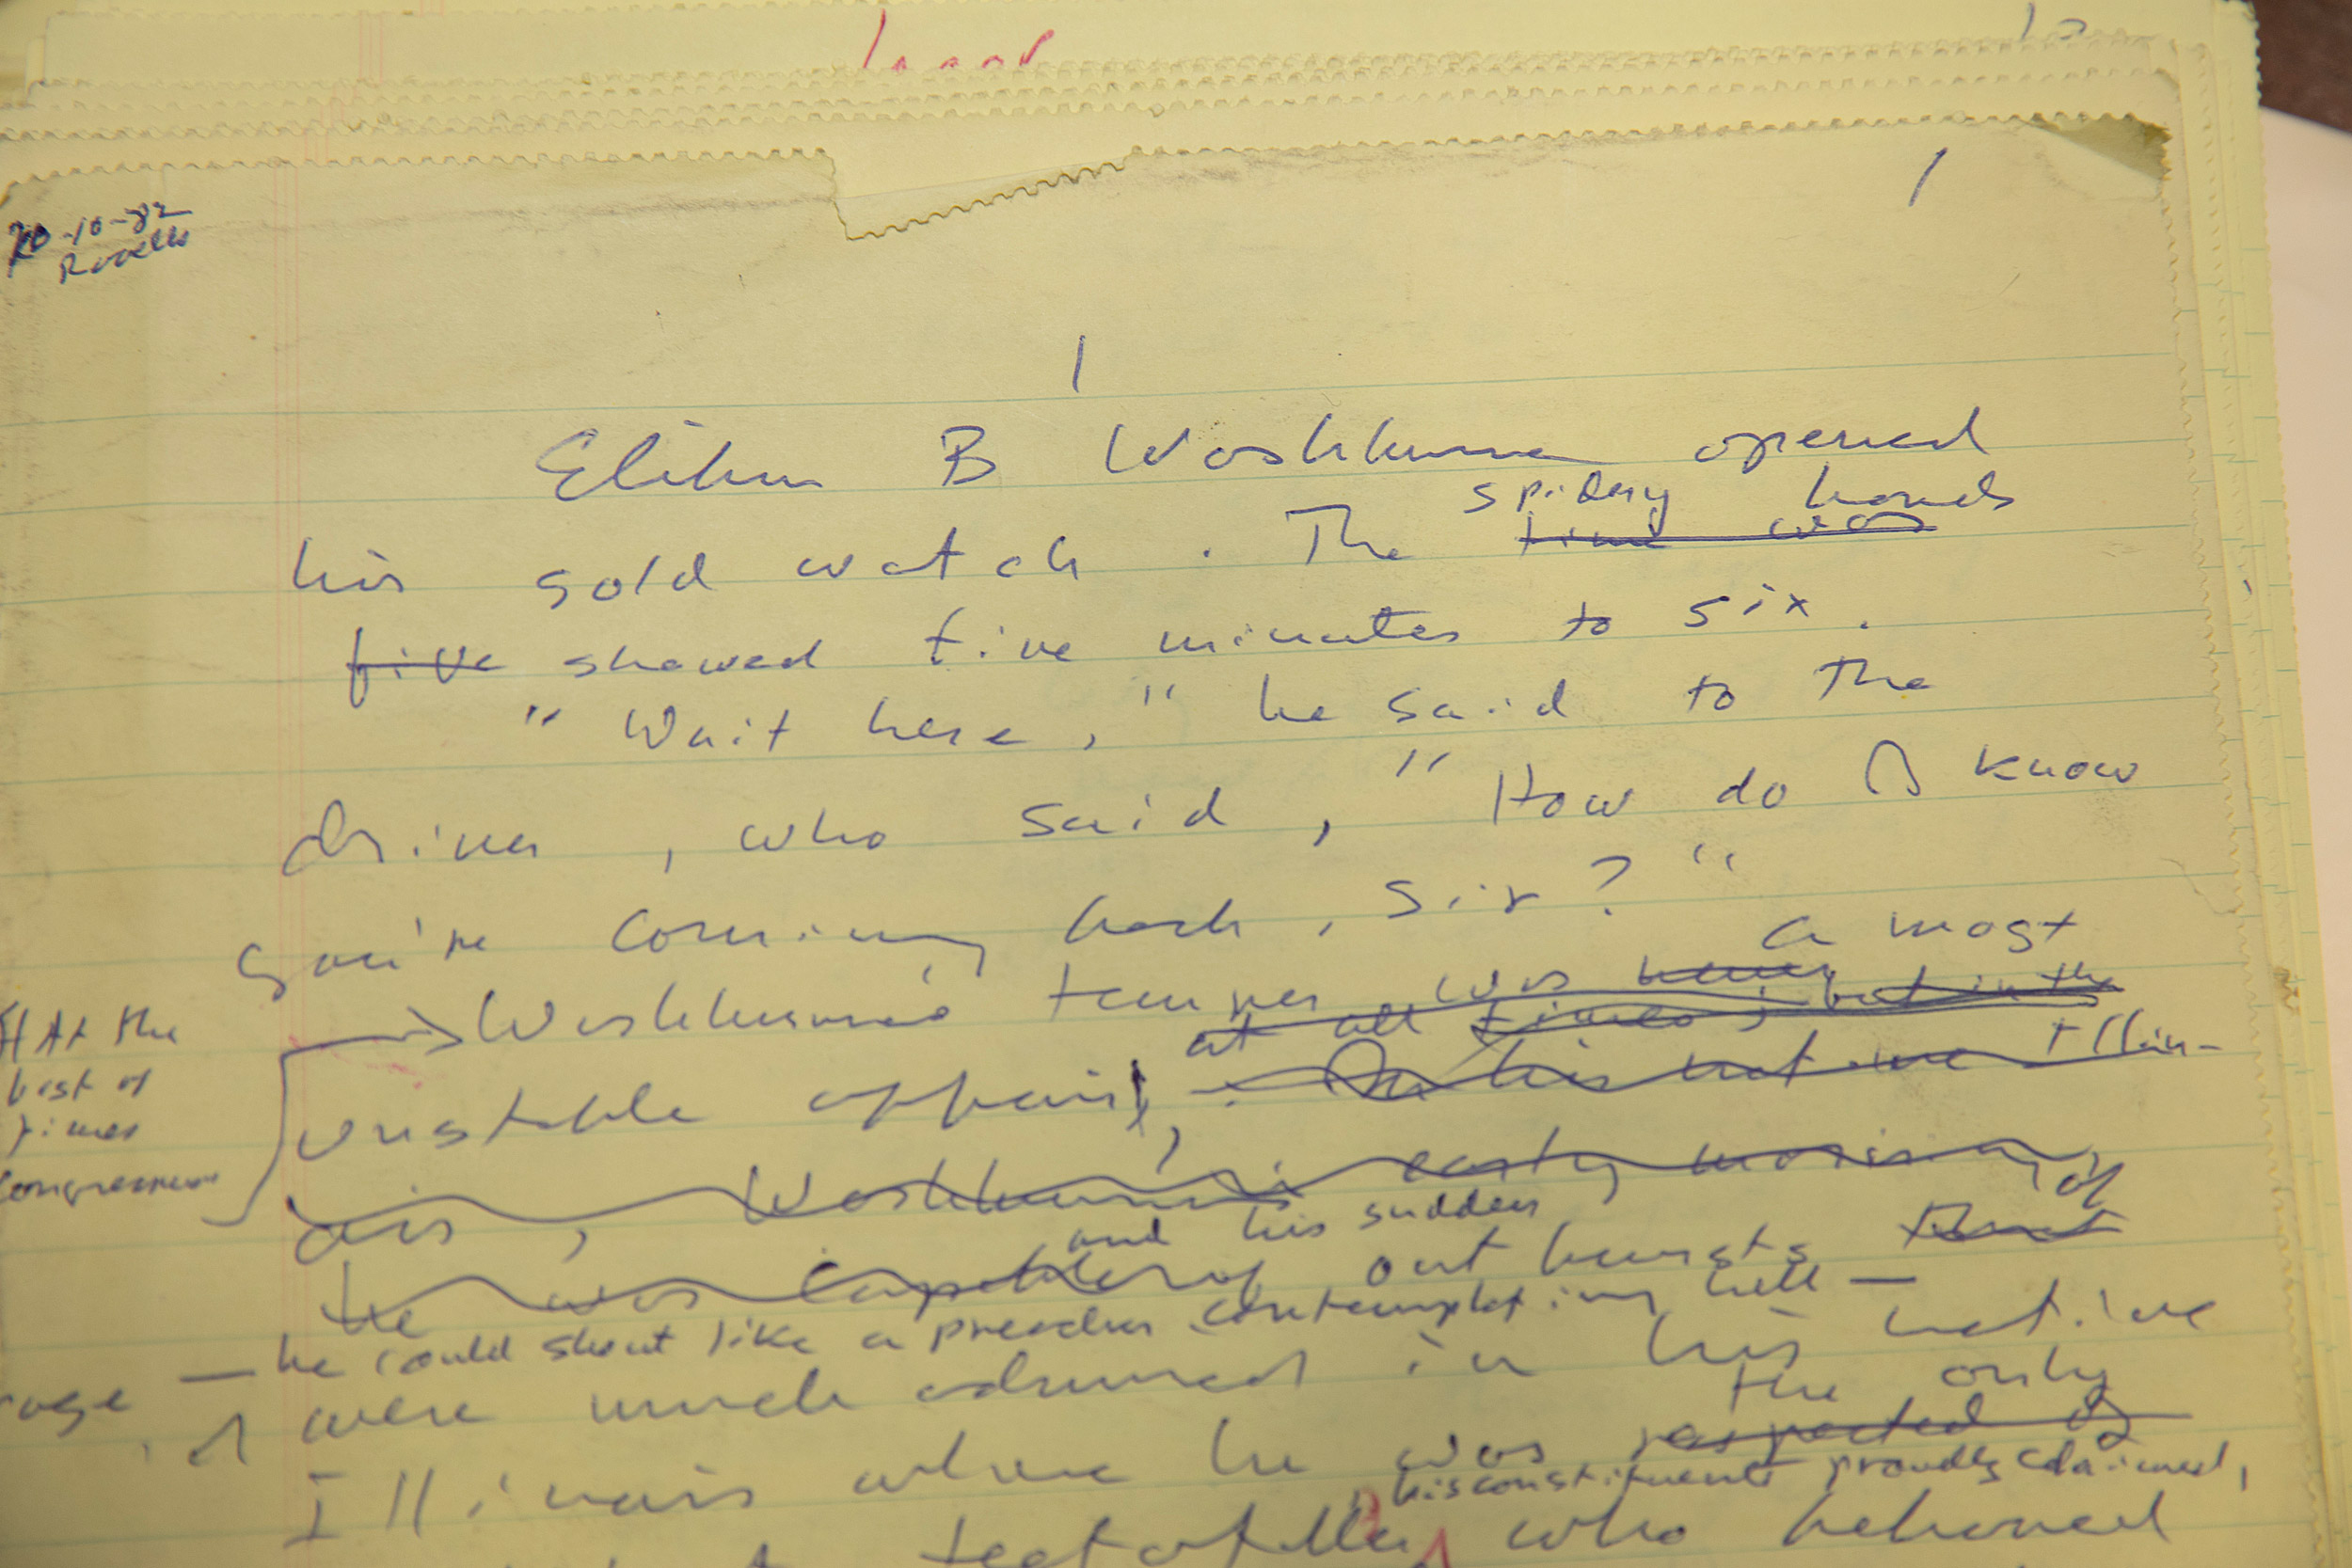 10
1
-10-82
Ravello
1
Elihu B Washburne opened
spidery hands
his gold watch. The time was
five showed five minutes to six.
"Wait here," he said to the
driver, who said, "How do I know
you're coming back, sir?"
a most
At the
best of
times
Congressman
Washburne's temper was never
at all times; but in the
unstable affair, In his native Illin-
ois, Washburne's early morning
and his sudden of
He was capable of outbursts that
rage — he could shout like a preacher contemplating hell —
were much admired in his native
the only
Illinois where he was respected by
his constituents proudly claimed,
teetotaller who behaved